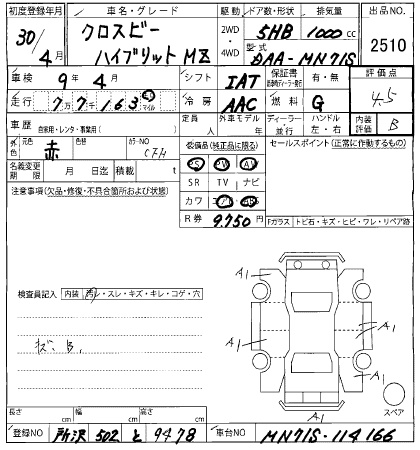 初度登録年月 車名・グレード 駆動 ドア数・形状 排気量 出品NO.
30/4月 クロスビー ハイブリット MZ 2WD・4WD 5HB 1000cc 2510
型式 DAA-MN71S
車検 9年4月 シフト IAT 保証書 有・無 評価点 4.5
走行 7万7千163 km マイル 冷房 AAC 燃料 G
車歴 自家用・レンタ・事業用( ) 定員 人 外車モデル 年 ディーラー・並行 ハンドル 左・右 内装評価 B
外色 元色 赤 色替 カラーNO CFH 装備品(純正品に限る) セールスポイント(正常に動作するもの)
名義変更期限 月 日迄 積載 t PS PW AW
注意事項(欠品・修復・不具合箇所および状態) SR TV ナビ
カワ エアB ABS
R券 9.750円 Fガラス トビ石・キズ・ヒビ・ワレ・リペア跡
検査員記入 内装 汚・スレ・キズ・キレ・コゲ・穴
キズ、B、
A1
A1
A1
A1
A1
スペア
長さ cm 幅 cm 高さ cm
登録NO 所沢 502 と 9478 車台NO MN71S-114166